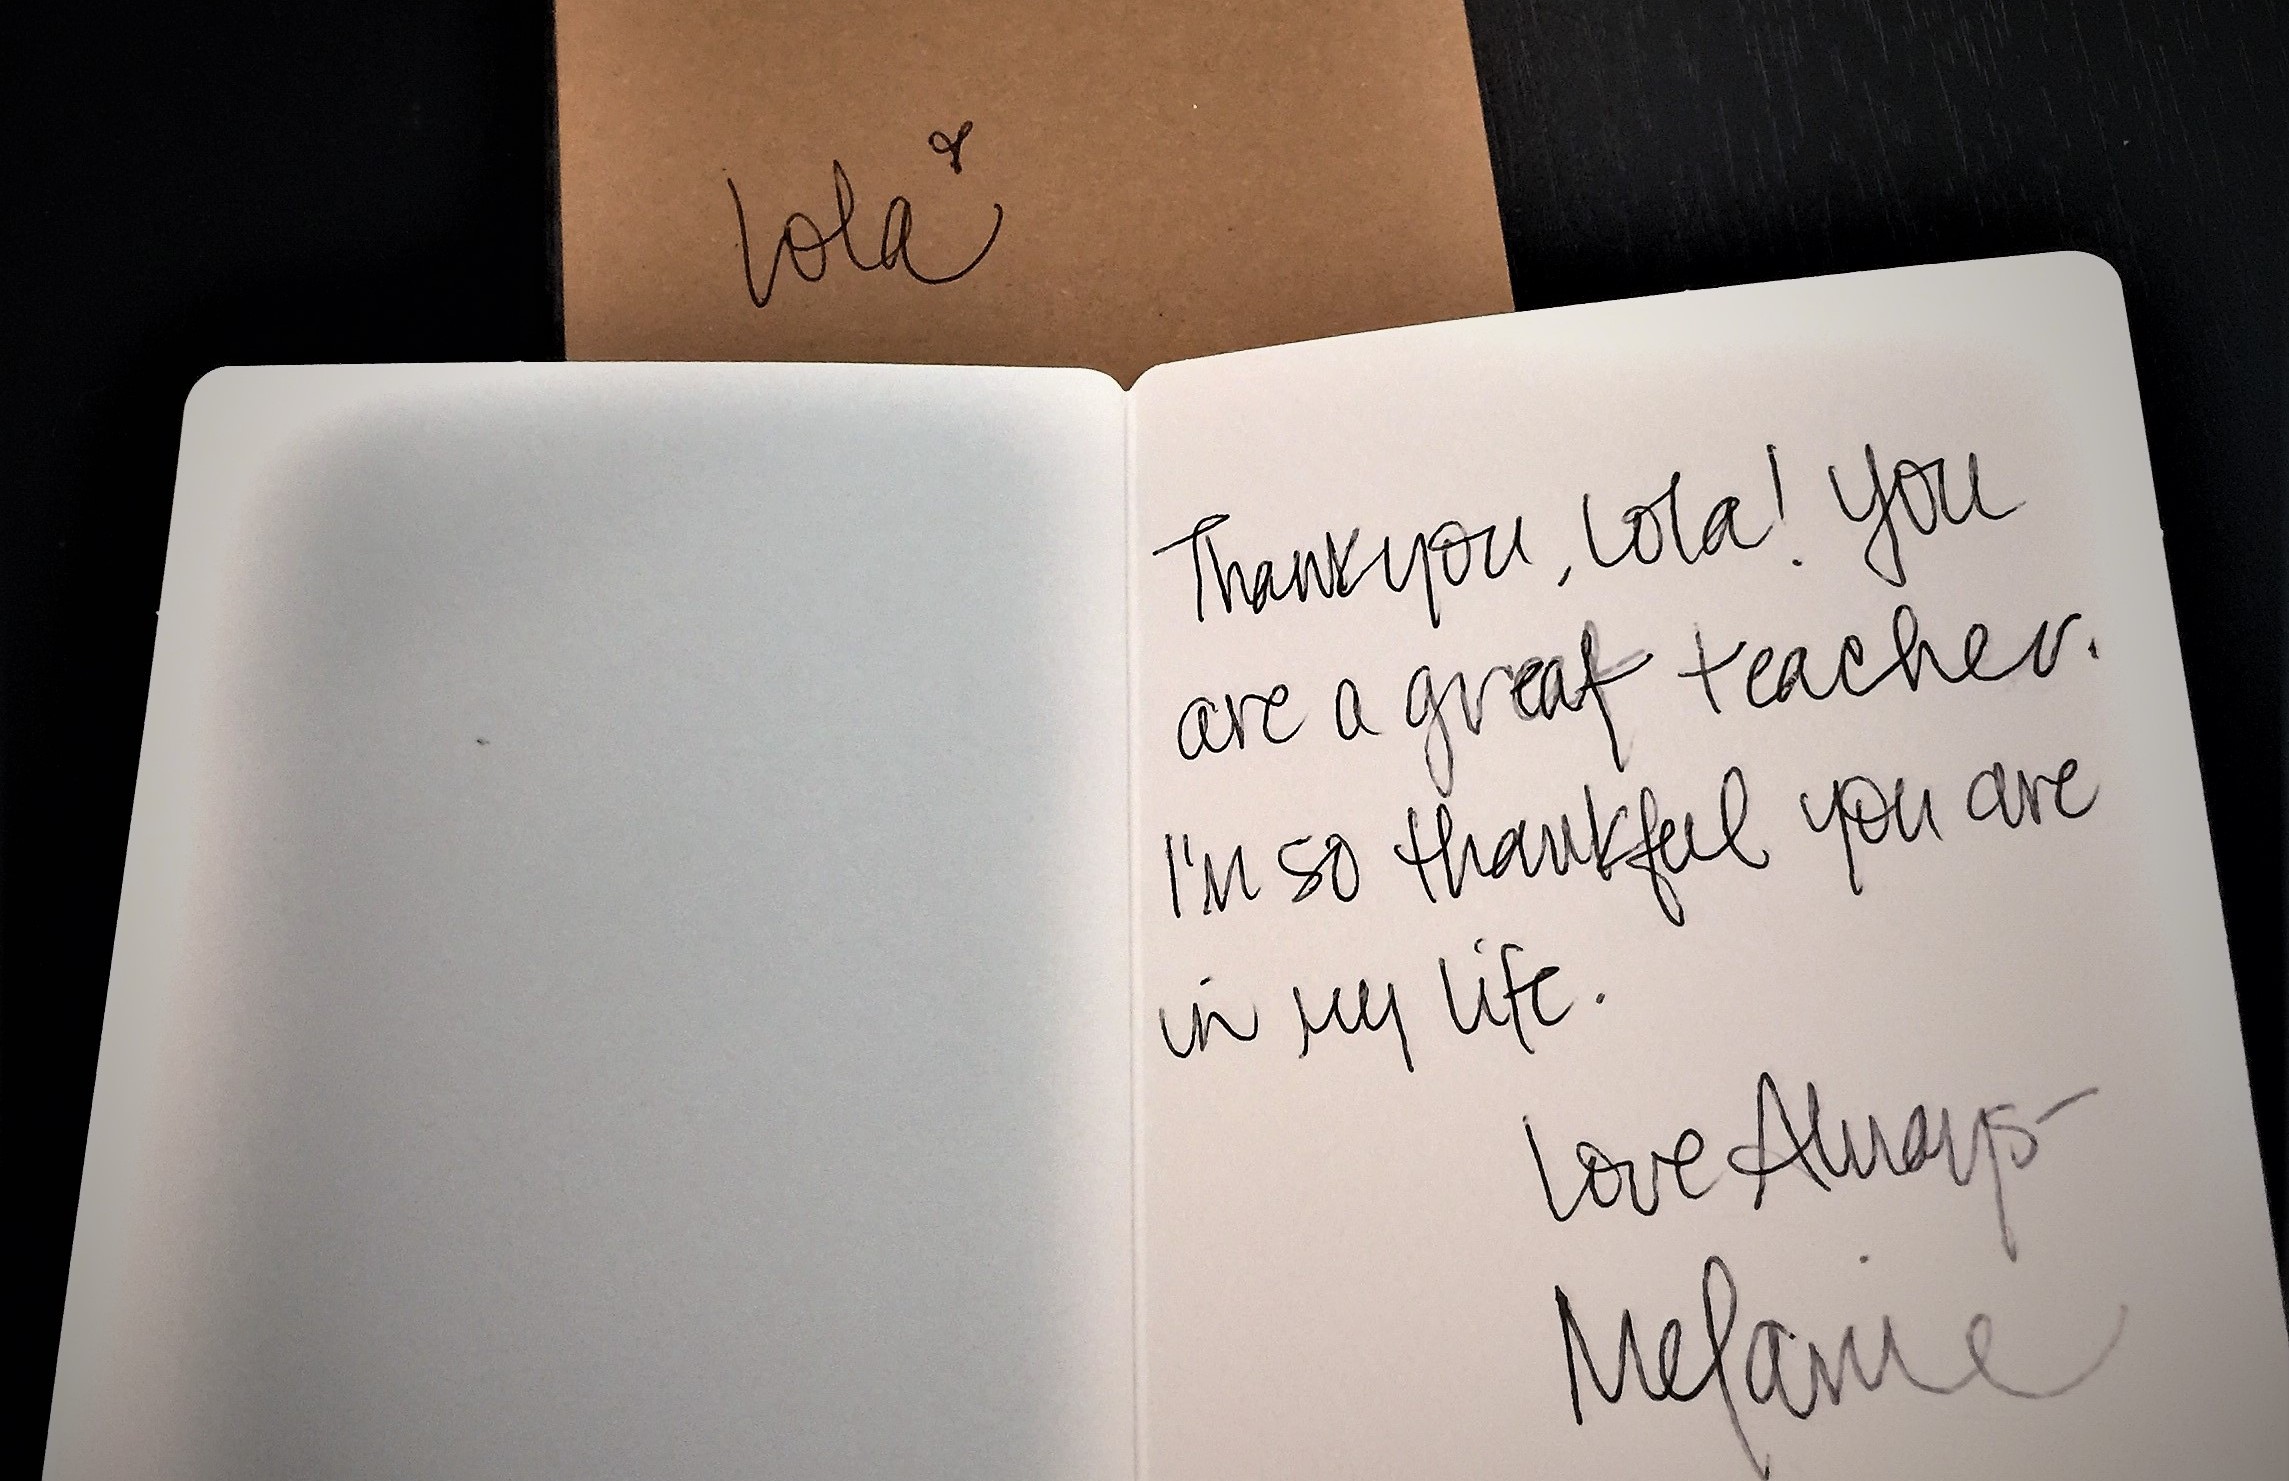 Lola
Thank you, Lola! You
are a great teacher.
I'm so thankful you are
in my life.
Love Always-
Melanie